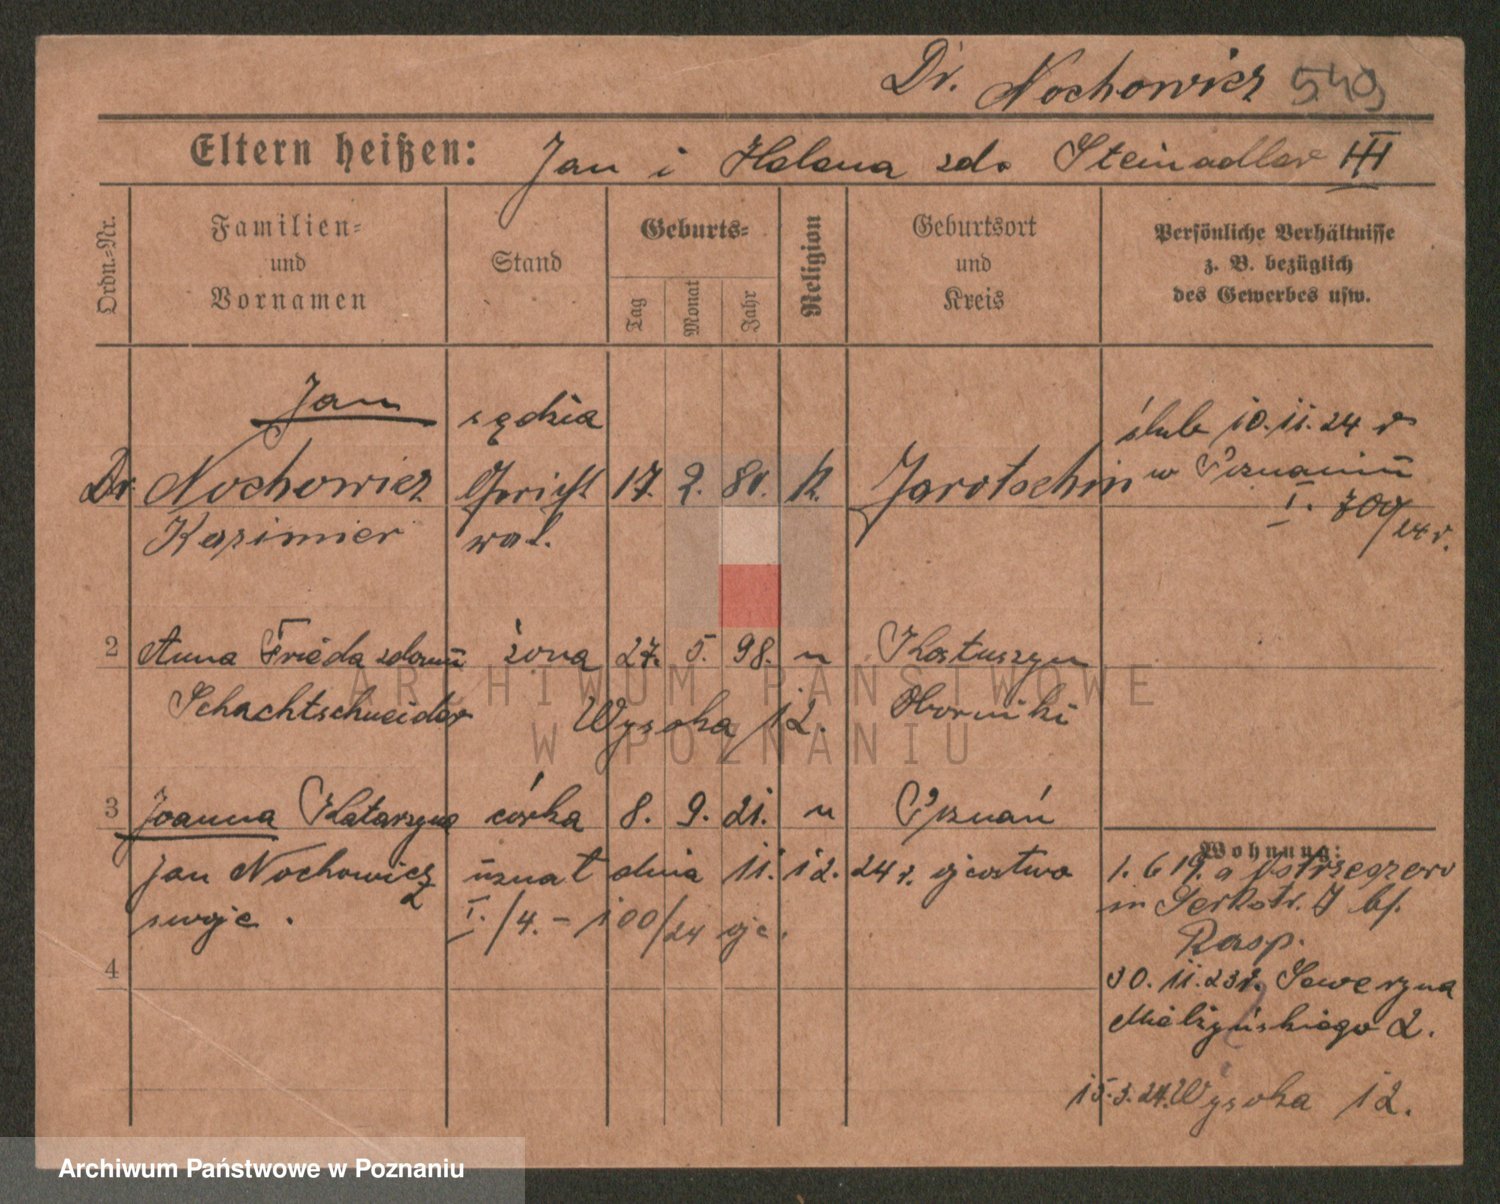 Dr. Nochowicz 549
Eltern heißen: Jan i Helena zd. Steinadler III
Ordn.-Nr.
Familien- und Vornamen
Stand
Geburts-
Tag Monat Jahr
Religion
Geburtsort und Kreis
Persönliche Verhältnisse z. B. bezüglich des Gewerbes usw.
Jan sędzia
Dr. Nochowicz 17. 2. 80. k. Jarotschin
Kazimier
ślub 10.11.24 r
w Poznaniu
I. 700/24 r.
2 Anna Frieda żona 27. 5. 98. " Kostuszyn
Schachtschneider Wysoka 12. Oborniki
3 Joanna Katarzyna córka 8. 9. 21. " Poznań
Jan Nochowicz uznał dnia 11. 12. 24 r. ojcostwo
swoje. I./4. - 100/24
4
Wohnung:
1. 6 19. Ostrzeszow
30. 11. 23 r. Seweryna
Mielżyńskiego 2.
15. 3. 24. Wysoka 12.
ARCHIWUM PAŃSTWOWE
W POZNANIU
Archiwum Państwowe w Poznaniu